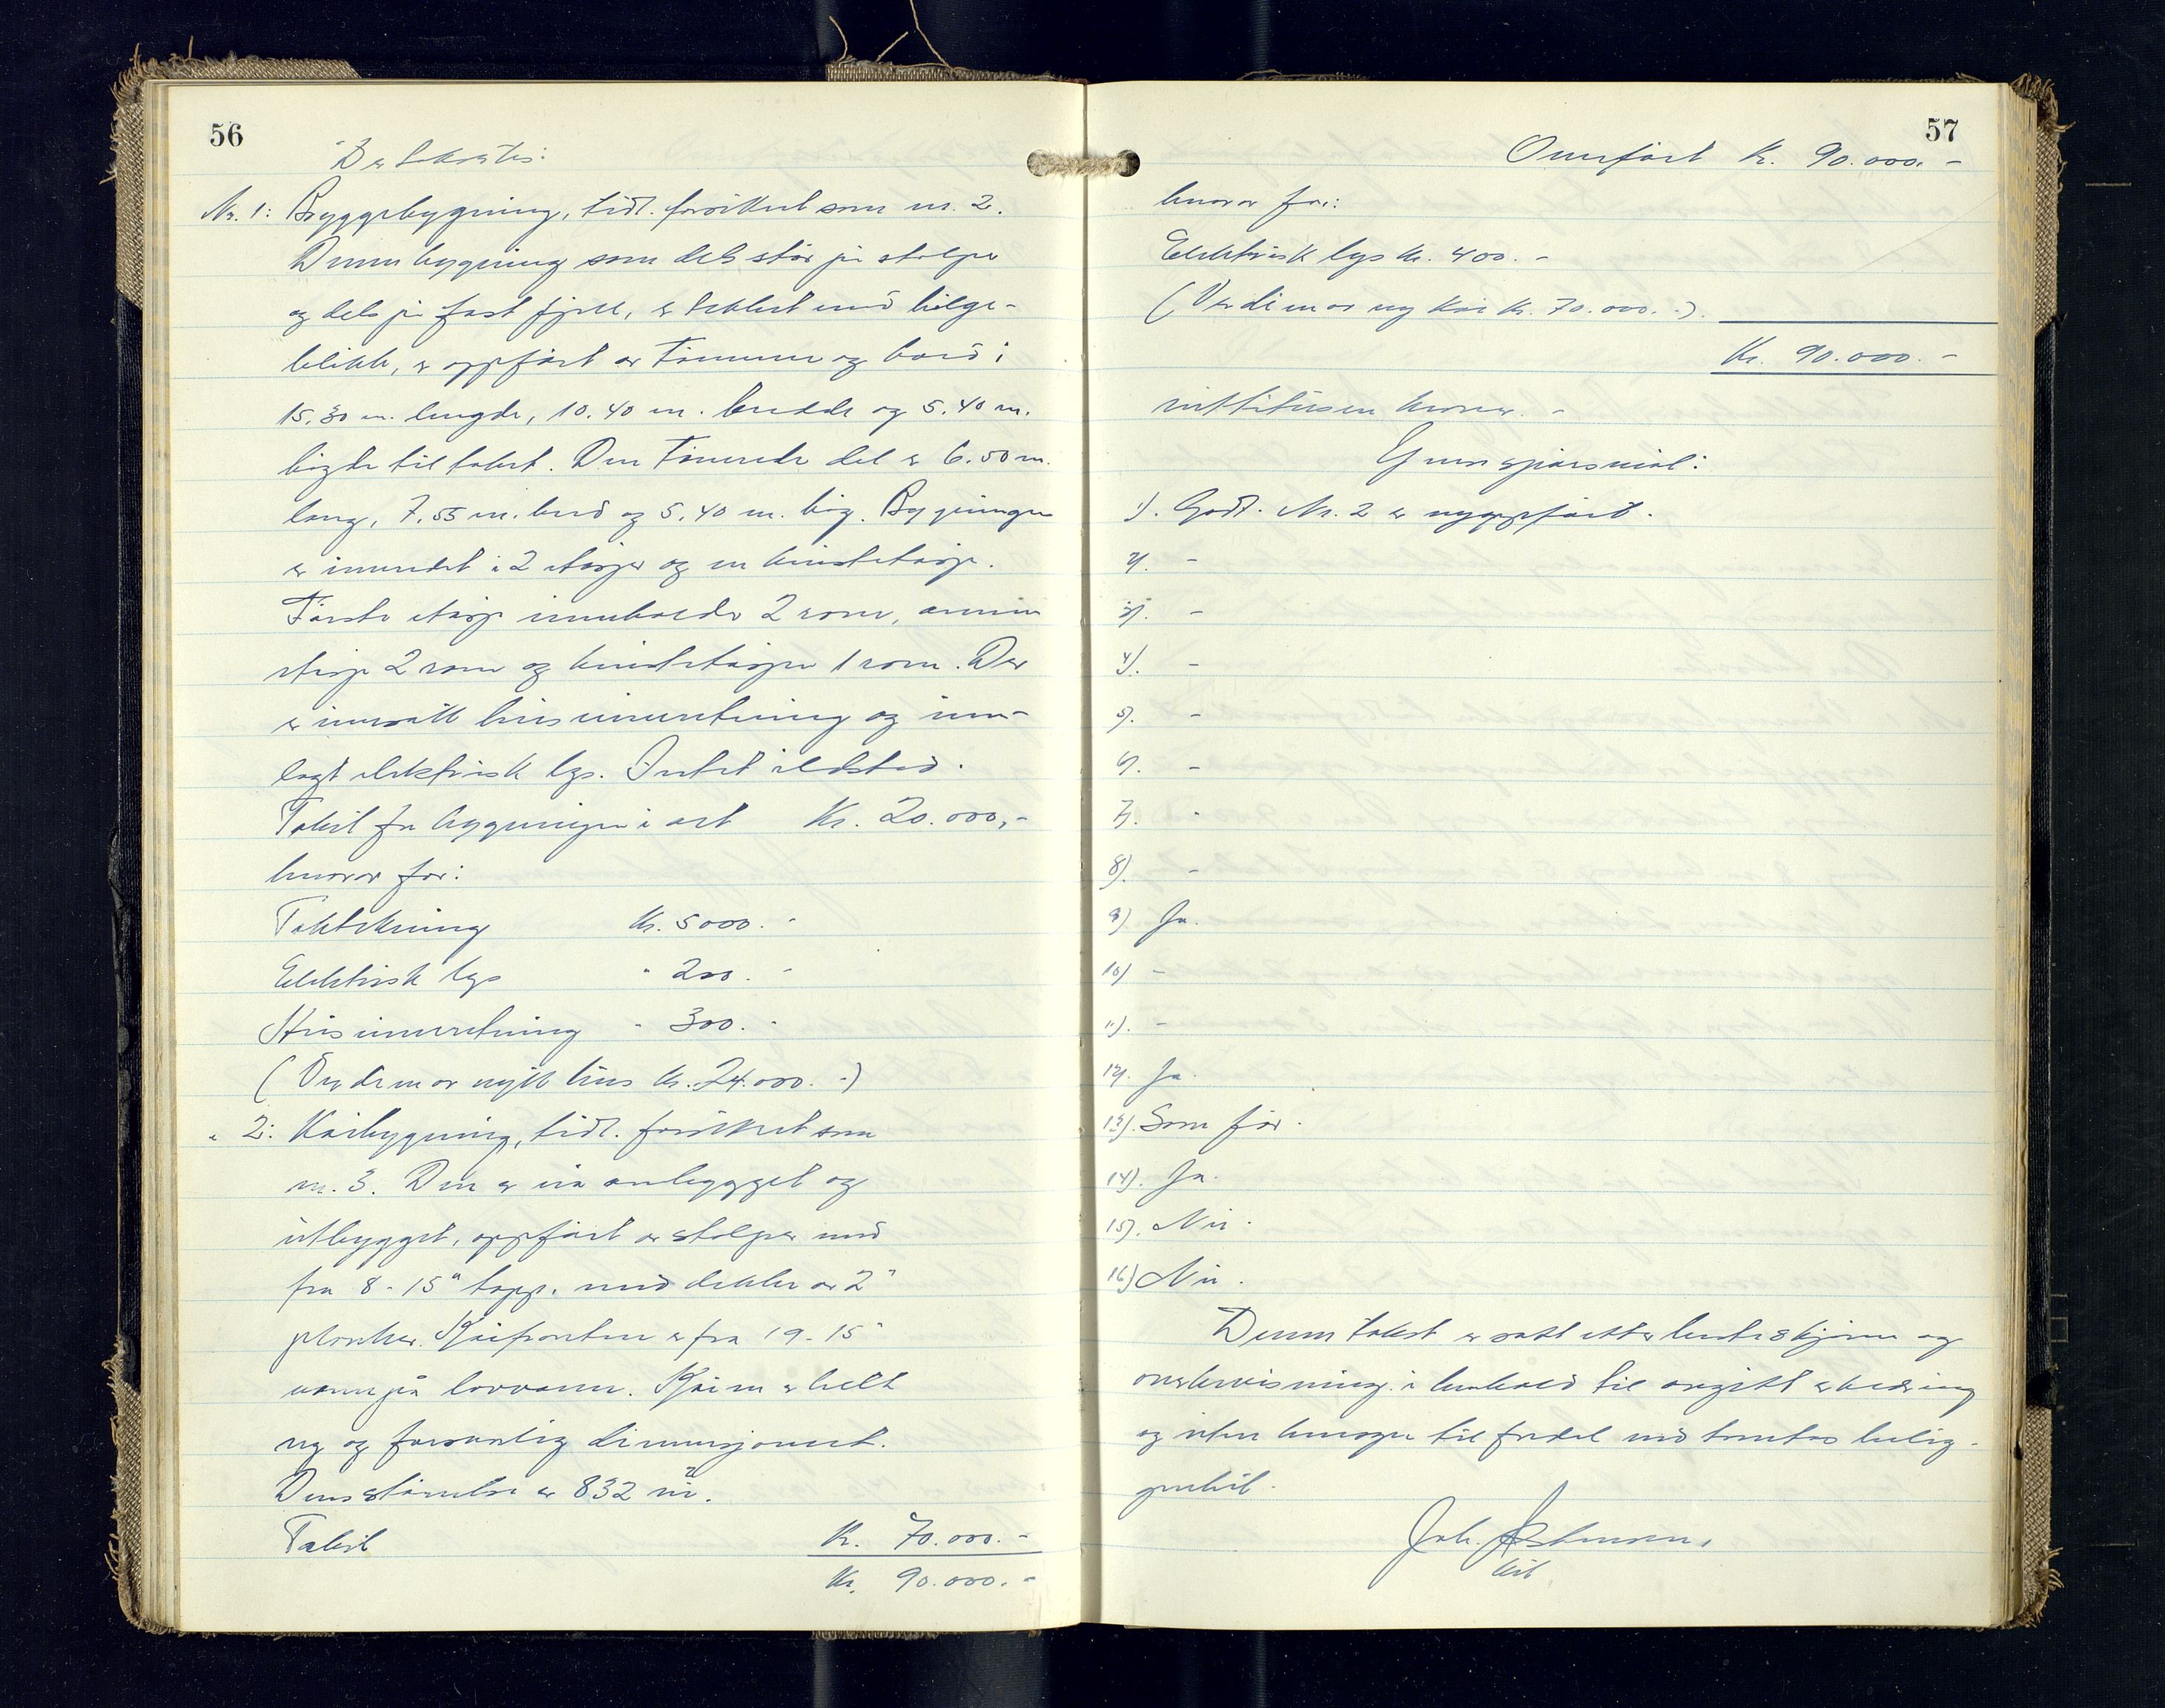 56
Der takseres:
Nr. 1: Bryggebygning, tidl. forsikret som nr. 2.
Denne bygning som dels står på stolper
og dels på fast fjell, er tekket med bølge-
blikk, er oppført av tømmer og bord i
15.30 m. lengde, 10.40 m. bredde og 5.40 m.
høgde til taket. Den tømrede del er 6.50 m.
lang, 7.55 m. bred og 5.40 m. høg. Bygningen
er innredet i 2 etasjer og en kvistetasje.
Første etasje inneholder 2 rom, annen
etasje 2 rom og kvistetasjen 1 rom. Der
er innsatt heisinnretning og inn-
lagt elektrisk lys. Intet ildsted.
Takst for bygningen i alt Kr. 20.000,-
hvorav for:
Taktekning Kr. 5000.-
Elektrisk lys " 200.-
Heisinnretning " 300.-
(Verdien av nytt hus kr. 24.000.-)
" 2: Kaibygning, tidl. forsikret som
nr. 3. Den er nu ombygget og
utbygget, oppført av stolper med
fra 8 - 15" topp. med dekke av 2"
planker. Kaifronten er fra 19 - 15"
vann på lavvann. Kaien er helt
ny og forsvarlig dimensjonert.
Dens størrelse er 832 m².
Takst Kr. 70.000.-
Kr. 90.000.-
57
Overført Kr. 90.000.-
hvorav for:
Elektrisk lys kr. 400.-
(Verdien av ny kai kr. 70.000.-).
Kr. 90.000.-
nittitusen kroner.-
Gjennspørsmål:
1). Godt. Nr. 2 er nyoppført.
2). -
3). -
4). -
5). -
6). -
7). -
8). -
9) Ja.
10) -
11). -
12). Ja.
13). Som før.
14). Ja.
15). Nei.
16) Nei.
Denne takst er satt etter beste skjønn og
overbevisning i henhold til avgitt erklæring
og uten hensyn til fordel ved tomtas belig-
genhet.
Joh.